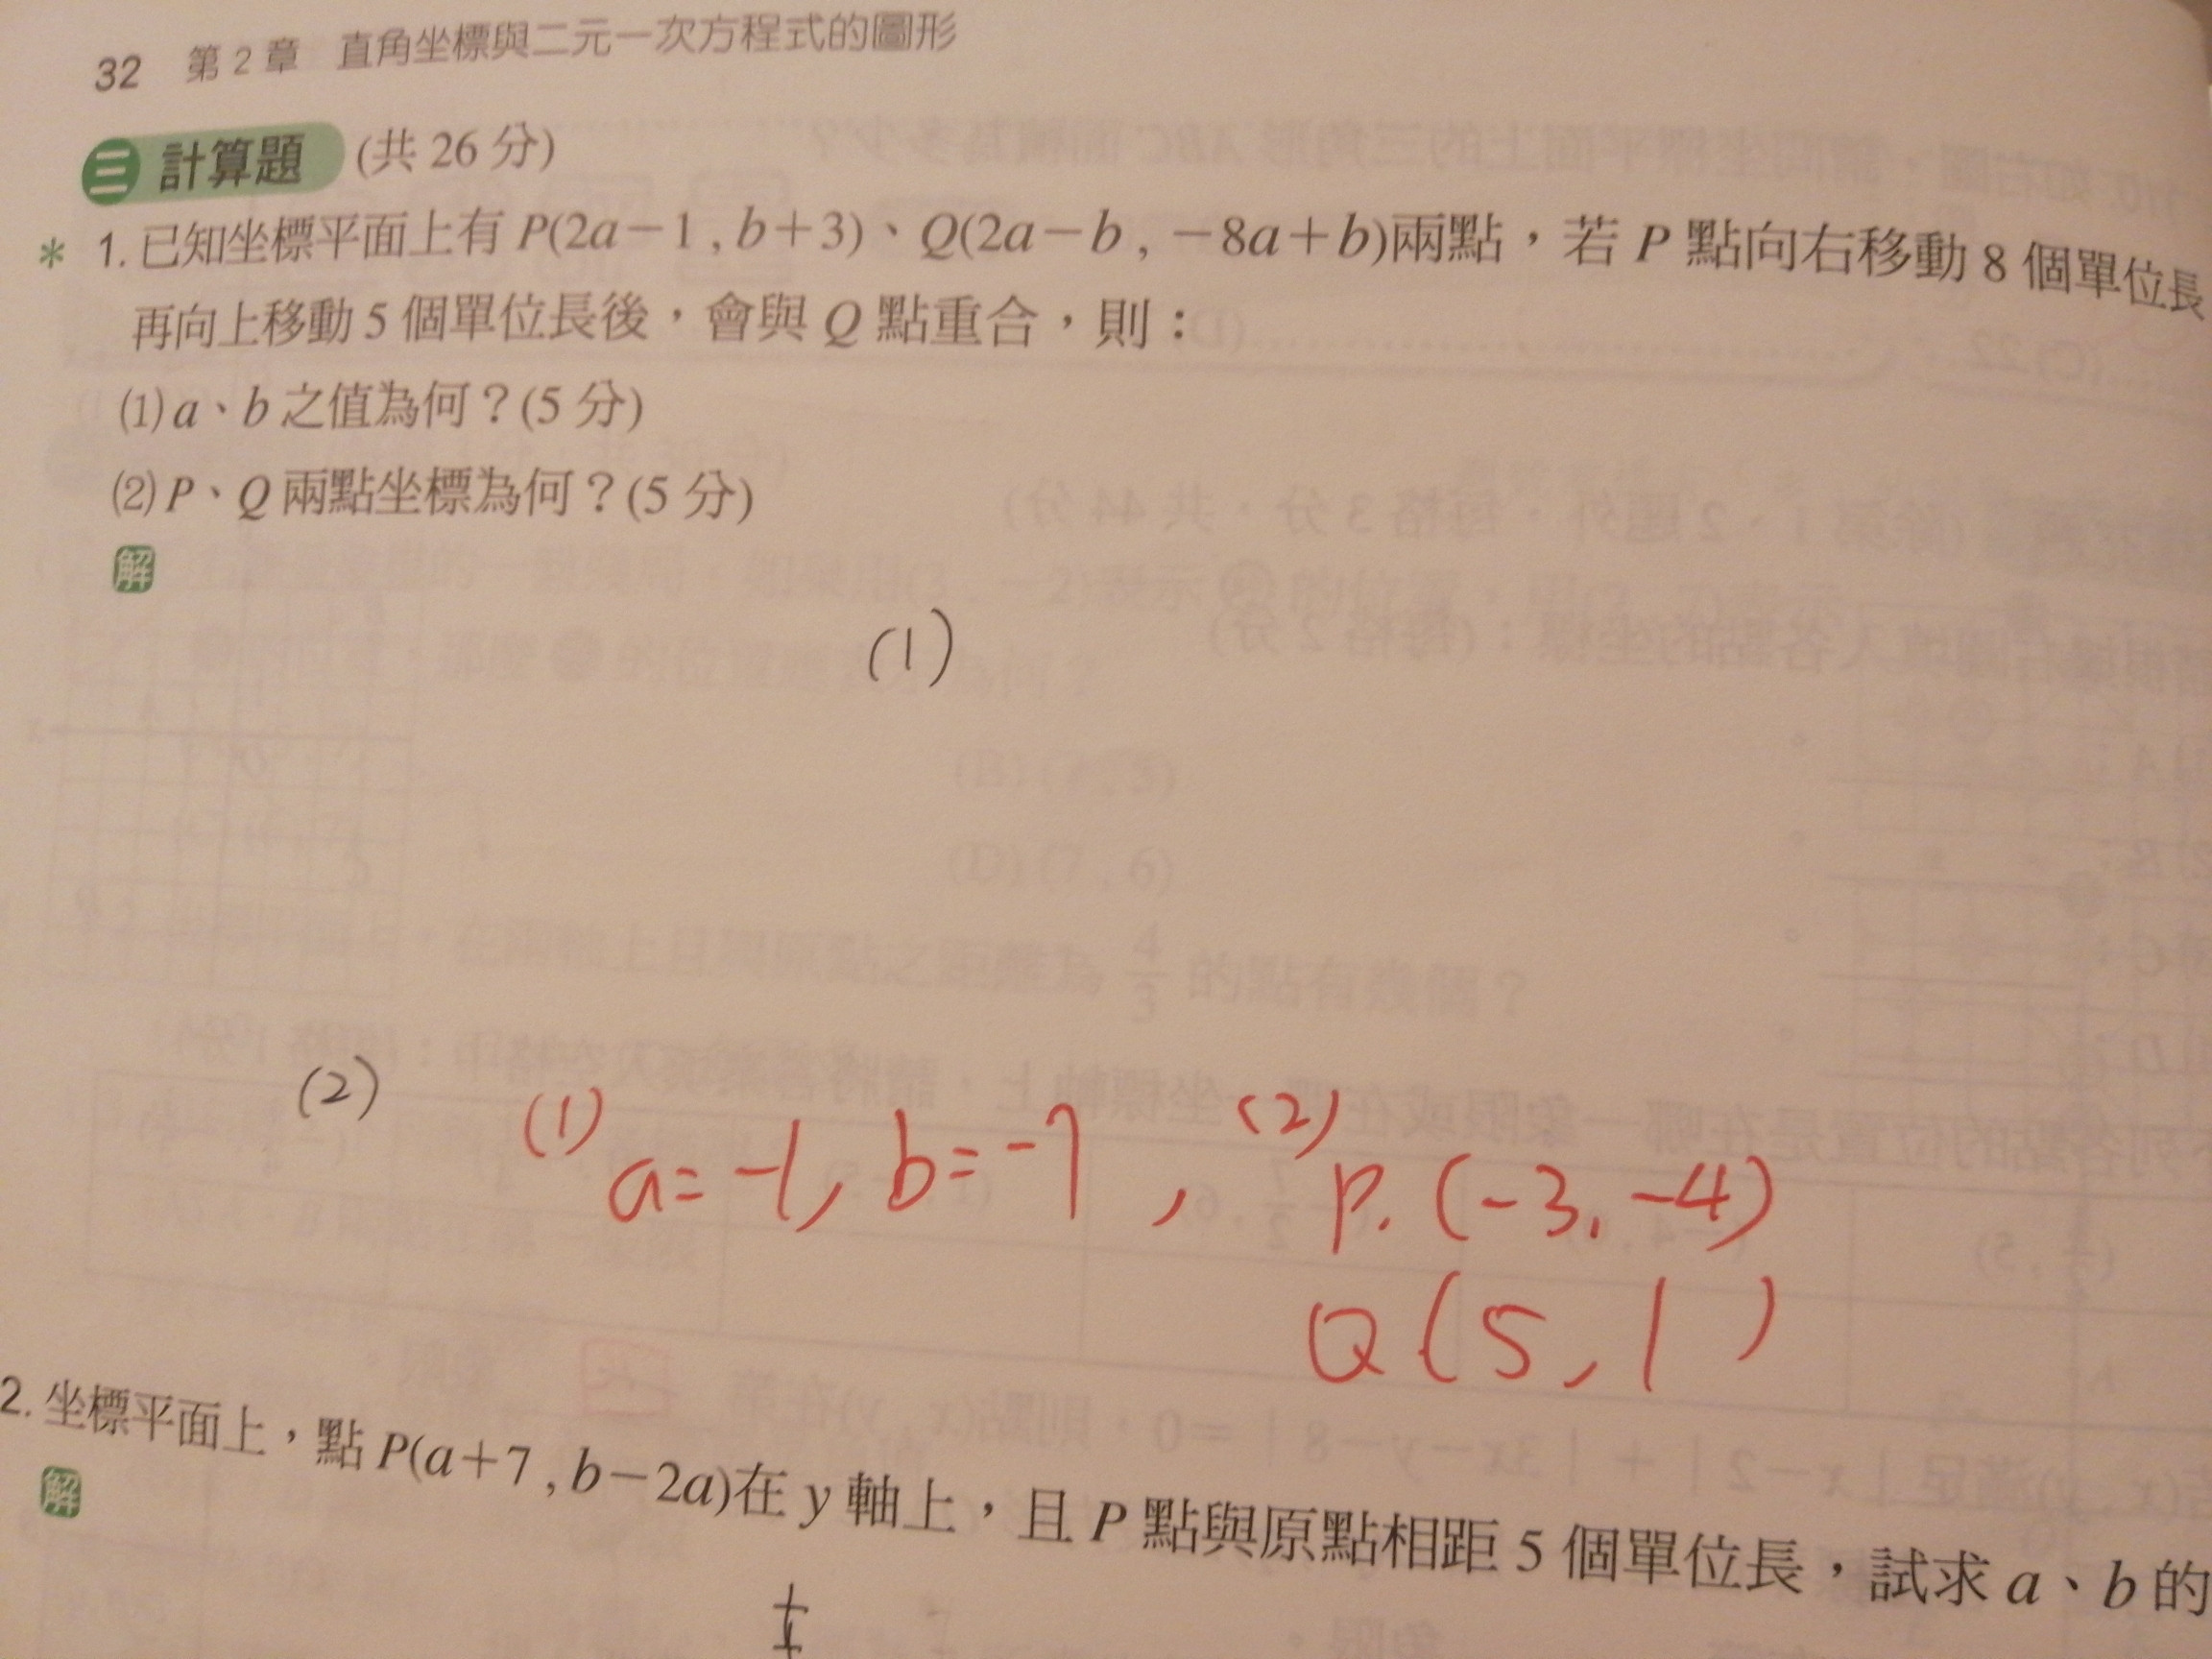 32 第2章 直角坐標與二元一次方程式的圖形
三 計算題 (共26分)
* 1. 已知坐標平面上有 P(2a-1 , b+3)、Q(2a-b , -8a+b)兩點,若 P 點向右移動 8 個單位長
再向上移動 5 個單位長後,會與 Q 點重合,則:
(1) a、b 之值為何?(5 分)
(2) P、Q 兩點坐標為何?(5 分)
解
(1)
(2)
(1) a=-1, b=-7 , (2) P. (-3, -4)
Q (5, 1)
2. 坐標平面上,點 P(a+7 , b-2a)在 y 軸上,且 P 點與原點相距 5 個單位長,試求 a、b 的
解